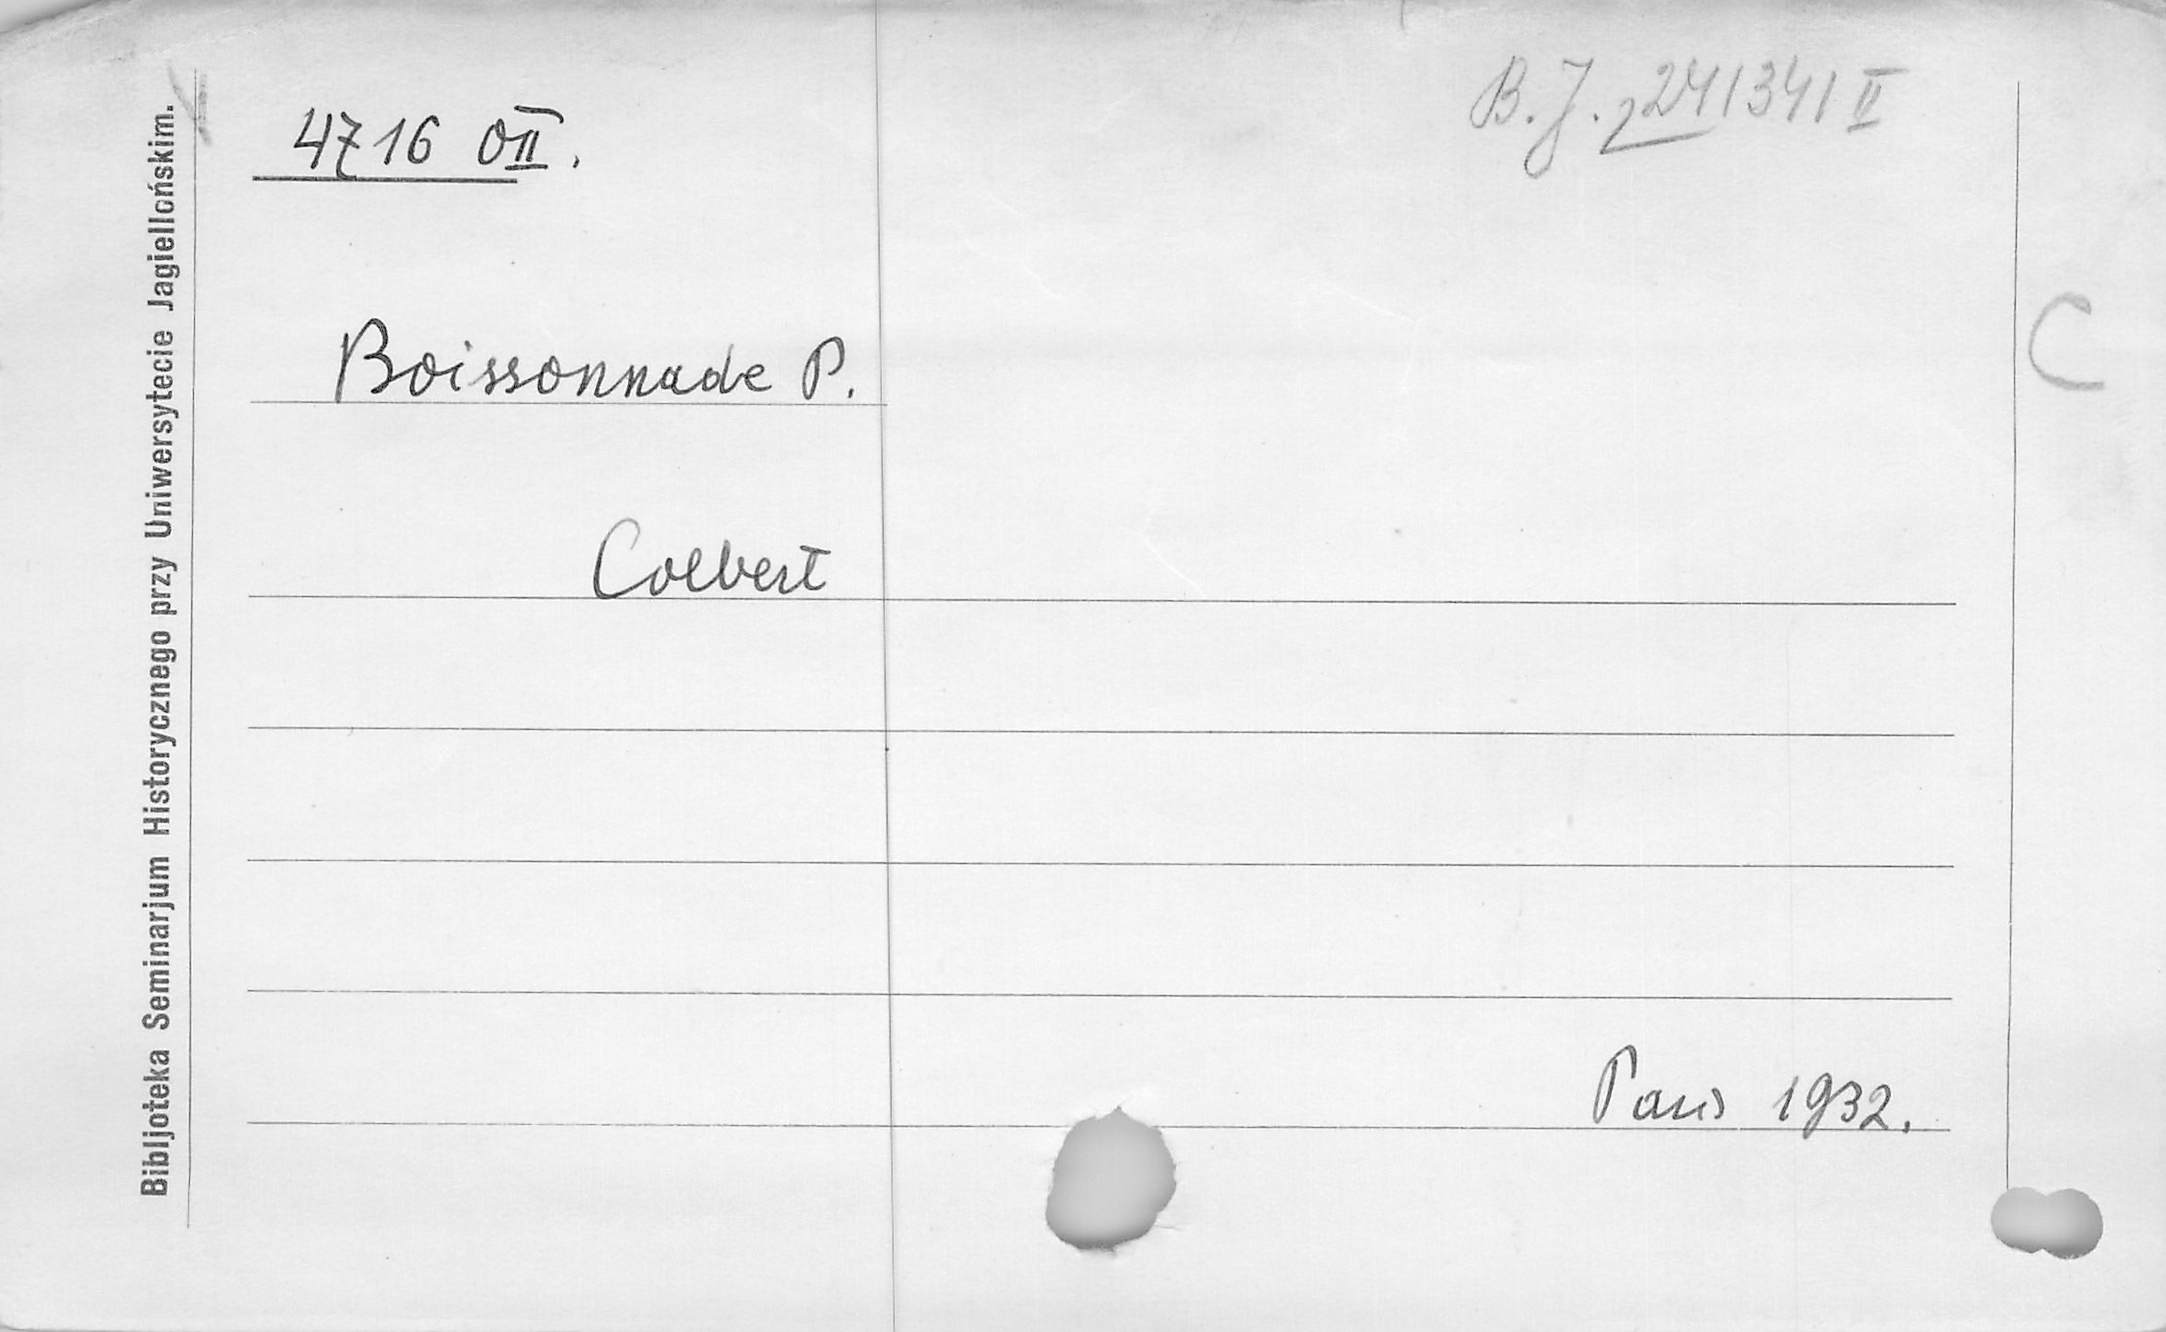 4716 OII.
B.J. 241341 II
Boissonnade P.
C
Colbert
Paris 1932.
Bibljoteka Seminarjum Historycznego przy Uniwersytecie Jagiellońskim.